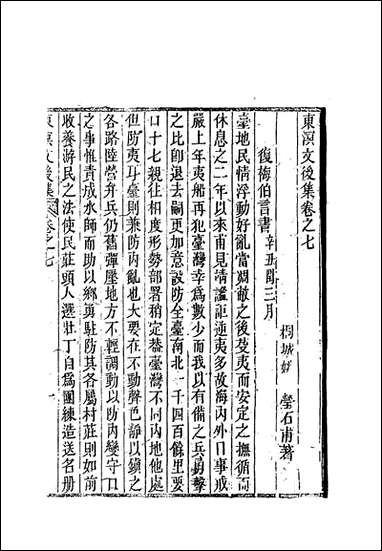 東溟文後集卷之七
桐城姚 瑩石甫著
復梅伯言書 辛丑閏三月
臺地民情浮動好亂當凋敝之後芟夷而安定之撫循而
休息之二年以來甫見靖謐詎逆夷多故海內外日事戒
嚴上年夷船再犯臺灣幸爲數少而我以有備之兵勇擊
之比卽退去嗣更加意設防全臺南北一千四百餘里要
口十七親往相度形勢部署稍定葢臺灣不同內地他處
但防夷耳臺則兼防內亂也大要在不動聲色靜以鎮之
各路陸營弁兵仍舊彈壓地方不輕調動以防內變守口
之事惟責成水師而助以鄉勇駐防其各屬村莊則如前
收養游民之法使民莊頭人選壯丁自爲團練造送名册
東溟文後集 卷之七 一